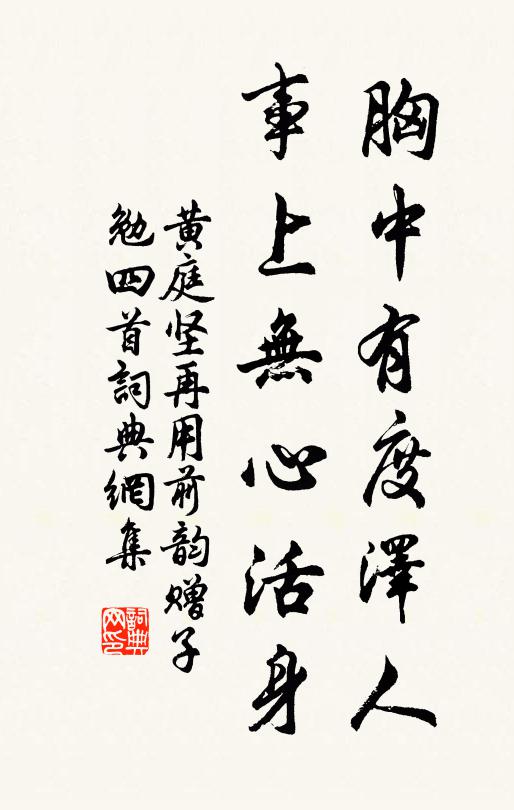 胸中有度澤人
事上無心活身
黄庭坚再用前韵赠子
勉四首詞典網集
詞典网印